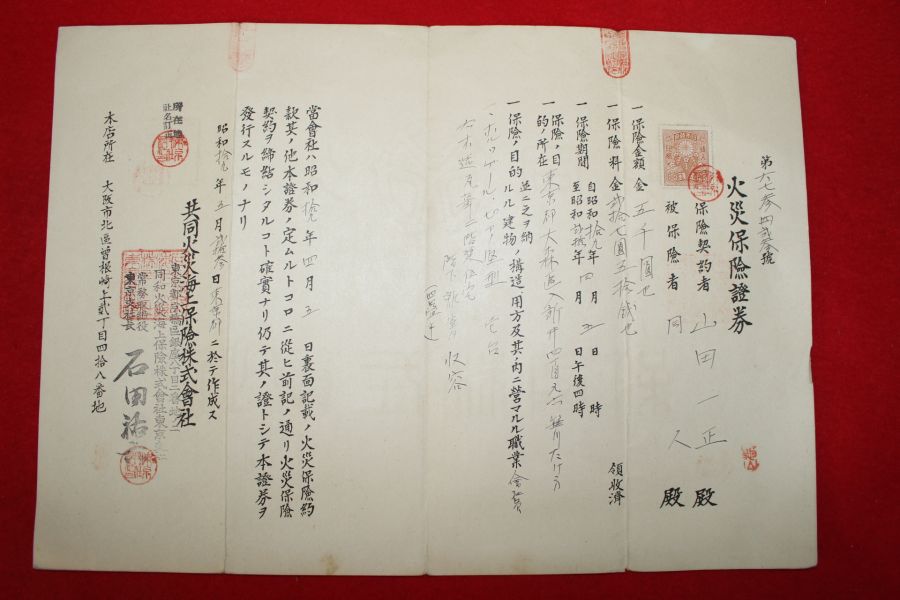 第六七参四弐参號
火災保險證券
保險契約者 山田一正 殿
被保險者 同人 殿
一 保險金額 金 五千圓也
一 保險料 金 弐拾七圓五拾銭也 領收濟
一 保險期間 自昭和拾九年 四月 五日 時
至昭和弐拾年 四月 五日午後四時
一 保險ノ目的ノ所在 東京都大森區入新井四
並ニ之ヲ納ルル建物ノ構造用方及其ノ内ニ營マルル職業 會社員
一 保險ノ目的
收容
當會社ハ昭和拾九年四月五日裏面記載ノ火災保險約
款其ノ他本證券ノ定ムルトコロニ從ヒ前記ノ通リ火災保險
契約ヲ締結シタルコト確實ナリ仍テ其ノ證トシテ本證券ヲ
發行スルモノナリ
昭和拾九年五月弐拾参日東京ニ於テ作成ス
共同火災海上保險株式會社
同和火災海上保險株式會社東京支
常務取締役
東京支社長 石田
本店所在 大阪市北區曽根崎上弐丁目四拾八番地
所在地
社名訂正